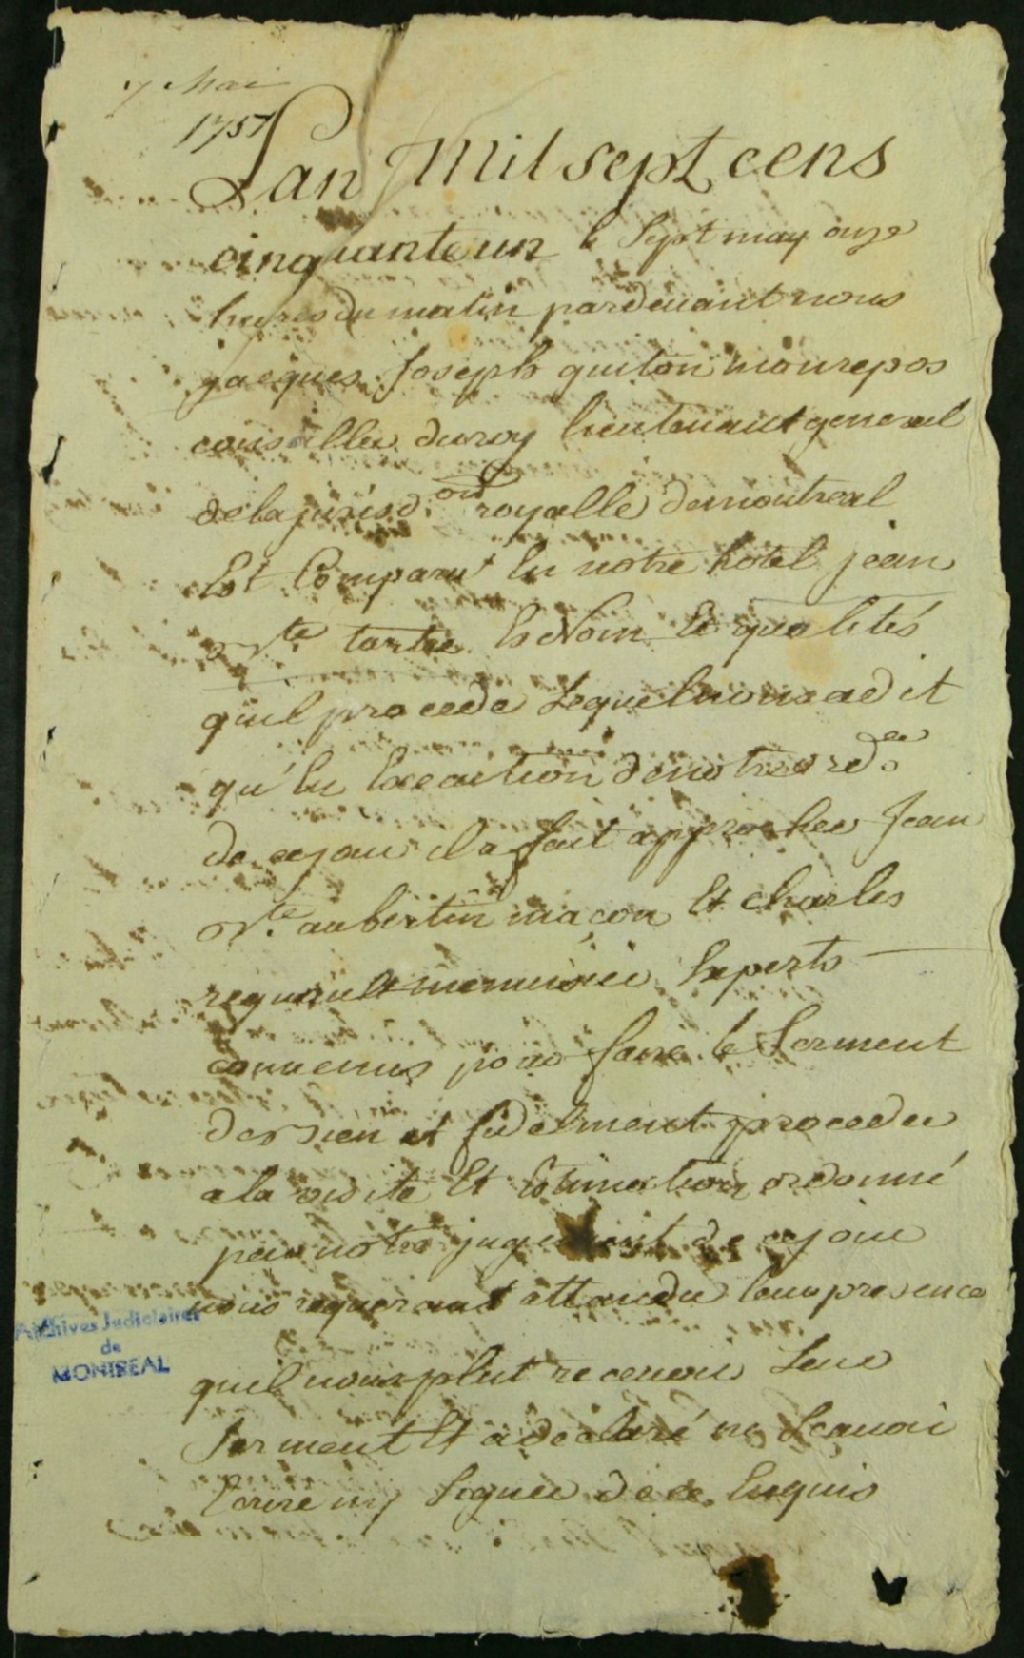 7 Mai
1751
Lan Mil sept cens
cinquante un le Sept may onze
heures du matin pardevant nous
jacques Joseph guiton monrepos
conseiller du roy lieutenant general
de la jurisd.on royalle de montreal
Est Comparu En notre hotel jean
Bte tartre Es Nom Et qualités
quil procede Lequel nous a dit
qu'En Execution de notre ord.ce
de ce jour il a fait approcher Jean
Bte aubertin maçon Et charles
menuisier Experts
convenus pour faire le Serment
de bien et fidelment proceder
a la visite Et Estimation ordonné
par notre jugement de ce jour
nous requerant attandu leur presence
quil nous plut recevoir Leur
Serment Et a declaré ne Scavoir
Ecrire ny Signer de ce Enquis
Archives Judiciaires
de
MONTREAL